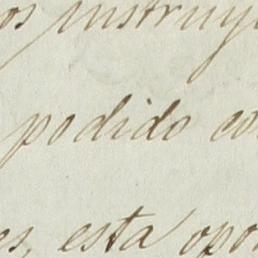 os instruy
podido co
es, esta opo